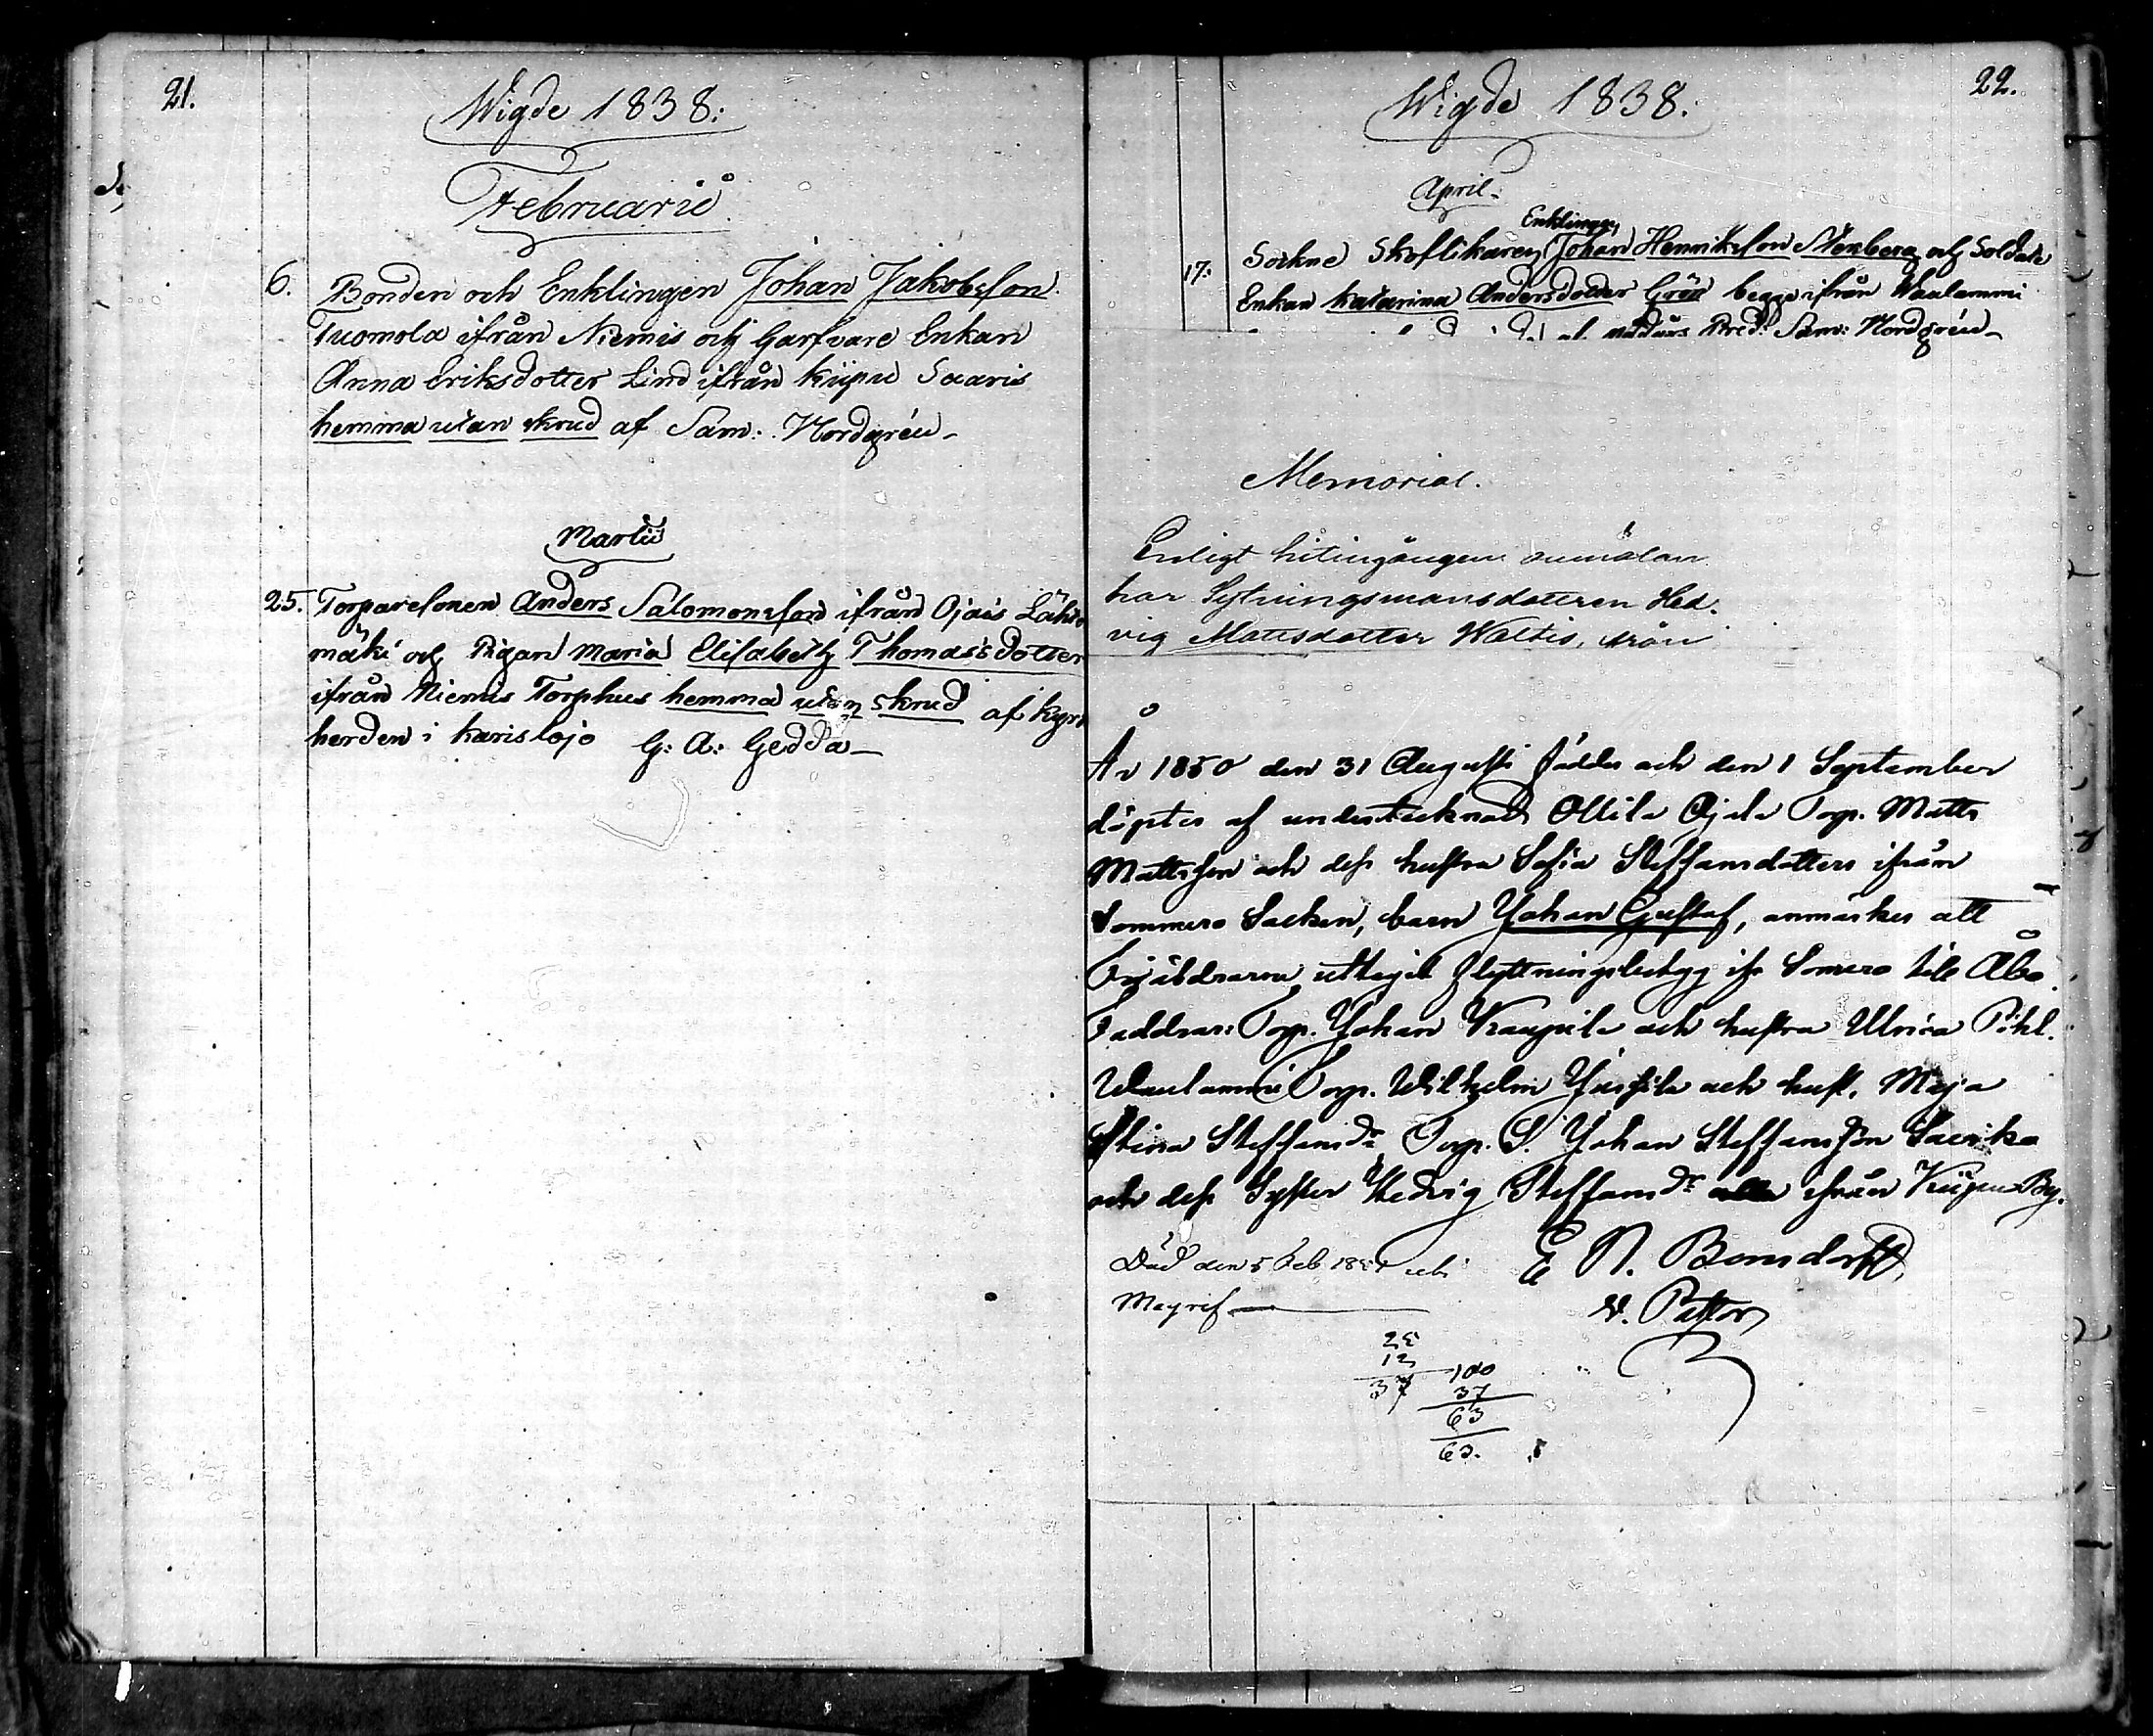 21.
Wigde 1838:
Februarii
6. Bonden och Enklingen Johan Jakobsson
Tuomola ifrån Niemis och Garfvare Enkan
Anna Eriksdotter Lind ifrån Kiipu Saaris
hemma utan skrud af Sam: Nordgrén
Martii
25. Torparesonen Anders Salomonsson ifrån Ojais Lähte
mäki och Pigan Maria Elisabeth Thomasdotter
ifrån Niemis Torphus hemma utan skrud af Kyrk
herden i Karislojo G: A: Gedda
22.
Wigde 1838:
April.
Enklingen
17: Sockne Skoflikaren Johan Henriksson Stenberg och Soldate
Enkan Katarina Andersdotter Grön begge ifrån Waulammi
af Pred: Sam: Nordgrén
Memorial.
Enligt hitingången anmälan
har Sytningsmansdotteren Hed-
vig Mattsdotter Waltis, från
År 1850 den 31 Augusti föddes och den 1 September
döptes af undertecknad Ollila Ojala Torp. Matts
Mattsson och dess hustru Sofia Steffansdotters ifrån
Sommero Socken, barn Johan Gustaf, anmärkes att
Föräldrarne uttagit flyttningsbetyg ifr Somero till Åbo.
Faddrar: Torp. Johan Kaupila och hustru Ulrica Pihl.
Waulammi Torp. Wilhelm Yrjhilä och hust. Maja
Stina Steffansdr Torp. S. Johan Steffansson Saarika
och dess Syster Hedvig Steffansdr alla ifrån Kiipu By.
Död den 5 Feb 185
E N. Bonsdorff,
v. Pastor
25
12
37
100
37
63
63.